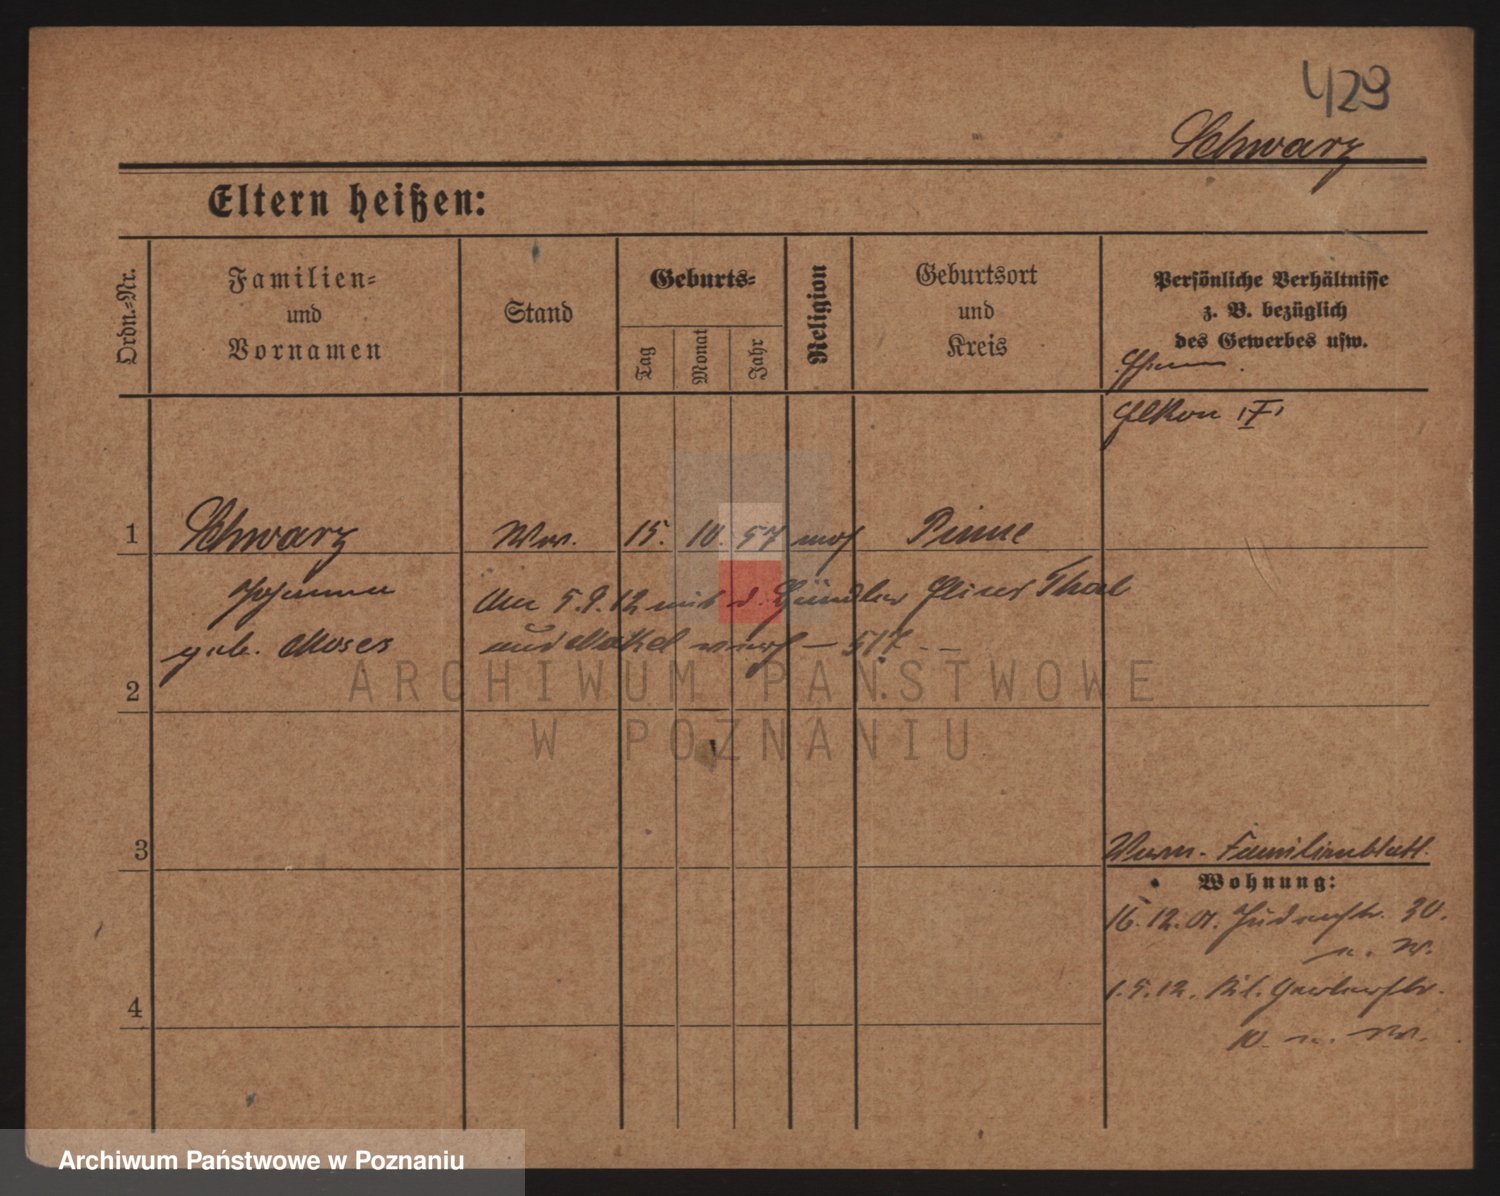 429
Schwarz
Eltern heißen:
Ordn.-Nr.
Familien-
und
Vornamen
Stand
Geburts-
Tag
Monat
Jahr
Religion
Geburtsort
und
Kreis
Persönliche Verhältnisse
z. B. bezüglich
des Gewerbes usw.
1
Schwarz
Ww.
15.
10.
57
mos
Pinne
Johanna
geb. Moses
Am 5.9.12 mit d. Händler Thal
und
2
3
Familienblatt.
Wohnung:
16.12.07. Judenstr. 30.
n. W.
1.5.12. Kl. Gerberstr.
4
10. n. W.
ARCHIWUM PAŃSTWOWE
W POZNANIU
Archiwum Państwowe w Poznaniu